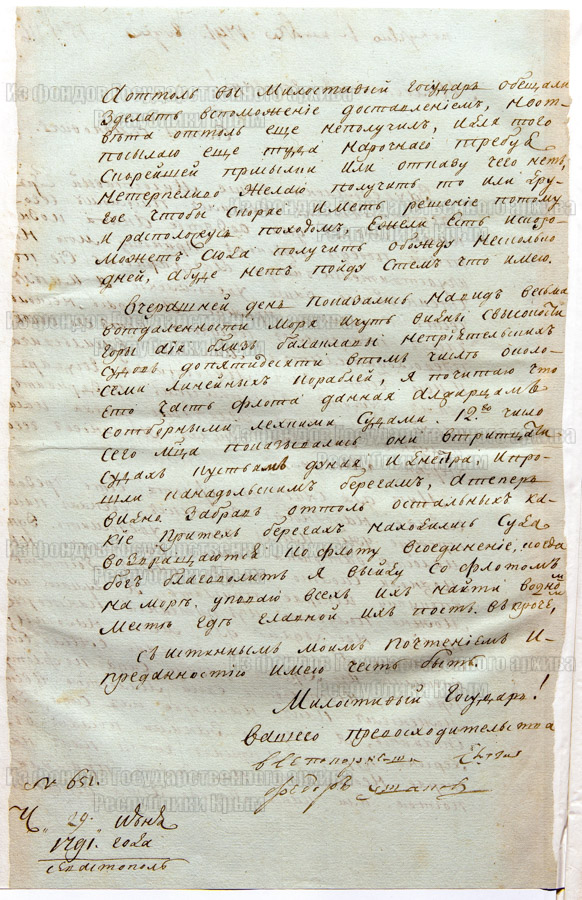 А оттоль вы Милостивый Государь обещали
зделать вспоможение доставлениемъ, но от
вѣта оттоль еще неполучил, и для того
посылаю еще туда нарочнаго требуя
скорейшей присылки или отказу чего нетъ,
нетерпеливо желаю получить то или дру
гое чтобы скорее иметь решение потому
и расположусь походомъ, Ежели есть и ско
можетъ сюда получить обожду несколько
дней, а буде нетъ пойду стемъ что имею.
Вчерашней день показались на видъ весьма
вотдаленности моря и чуть видны свысокости
горы
близ балаклавы неприятельских
судовъ до пятидесяти втомъ числѣ около
семи линейных кораблей, я почитаю что
ето часть флота данная Алжирцамъ
с
лехкими судами. 12го число
сего мца показывались они втритцати
судах пустынъ
и Днепра и про
шли к анадольскимъ берегам, а теперь
видно забрав оттоль остальных ка
кие при техъ берегах находились суда
возвращаютца ко флоту всоединение, когда
богъ благоволитъ я выйду со флотомъ
на морѣ уповаю всех ихъ найти водно
месте где главной ихъ постъ, в проче,
Съ истиннымъ моимъ почтениемъ и
преданностию имею честь быть
Милостивый Государь!
вашего превосходительства
всепокорнейши слуга
Федоръ Ушаковъ
№ 651.
Ч. 29. июня
1791 года
севастополь
Из фондов Государственного архива
Республики Крым